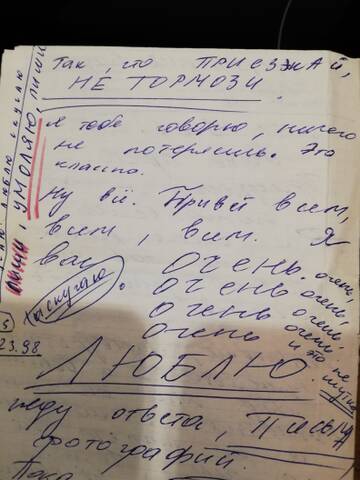 Так, что ПРИЕЗЖАЙ,
НЕ ТОРМОЗИ.
Я тебе говорю, ничего
не потеряешь. Это
классно.
Ну вс. Привет вим,
вим, вим. Я
вас ОЧЕНЬ. очень,
ОЧЕНЬ очень,
очень очень.
очень очень.
и это не шутка
ЛЮБЛЮ.
жду ответа, ПИСЬМА
фотографий.
Пока
Я скучаю
пиши, УМОЛЯЮ, пиши
люблю скучаю
23.98